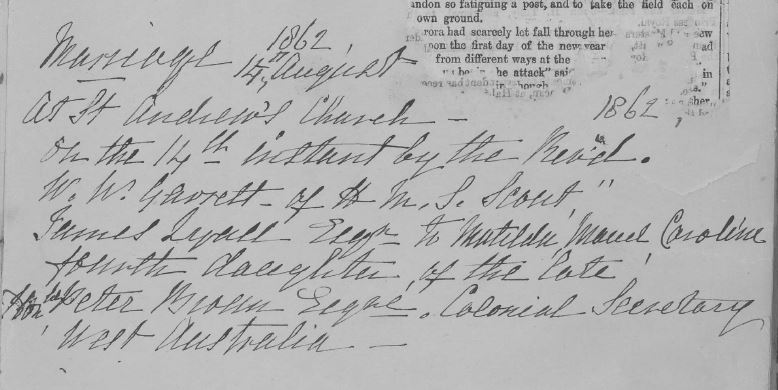 andon so fatiguing a post, and to take the field each on
own ground.
rora had scarcely let fall through her
pon the first day of the new year
from different ways at the
he attack" said
1862
Marriage 14th August
At St Andrew's Church —
1862
On the 14th instant by the Revd.
W. W. Garrett - of H. M. S. Scout"
James Lyall Esqr to Matilda, Maud Caroline
fourth daughter, of the late
Honble Peter Broun Esqre, Colonial Secretary
West Australia —